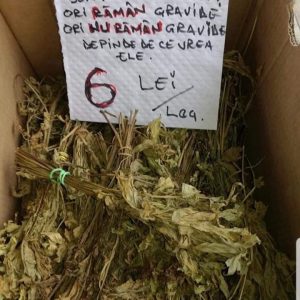 ORI RĂMÂN GRAVIDE
ORI NU RĂMÂN GRAVIDE
DEPINDE DE CE VREA
ELE.
6 LEI
/ Leg.